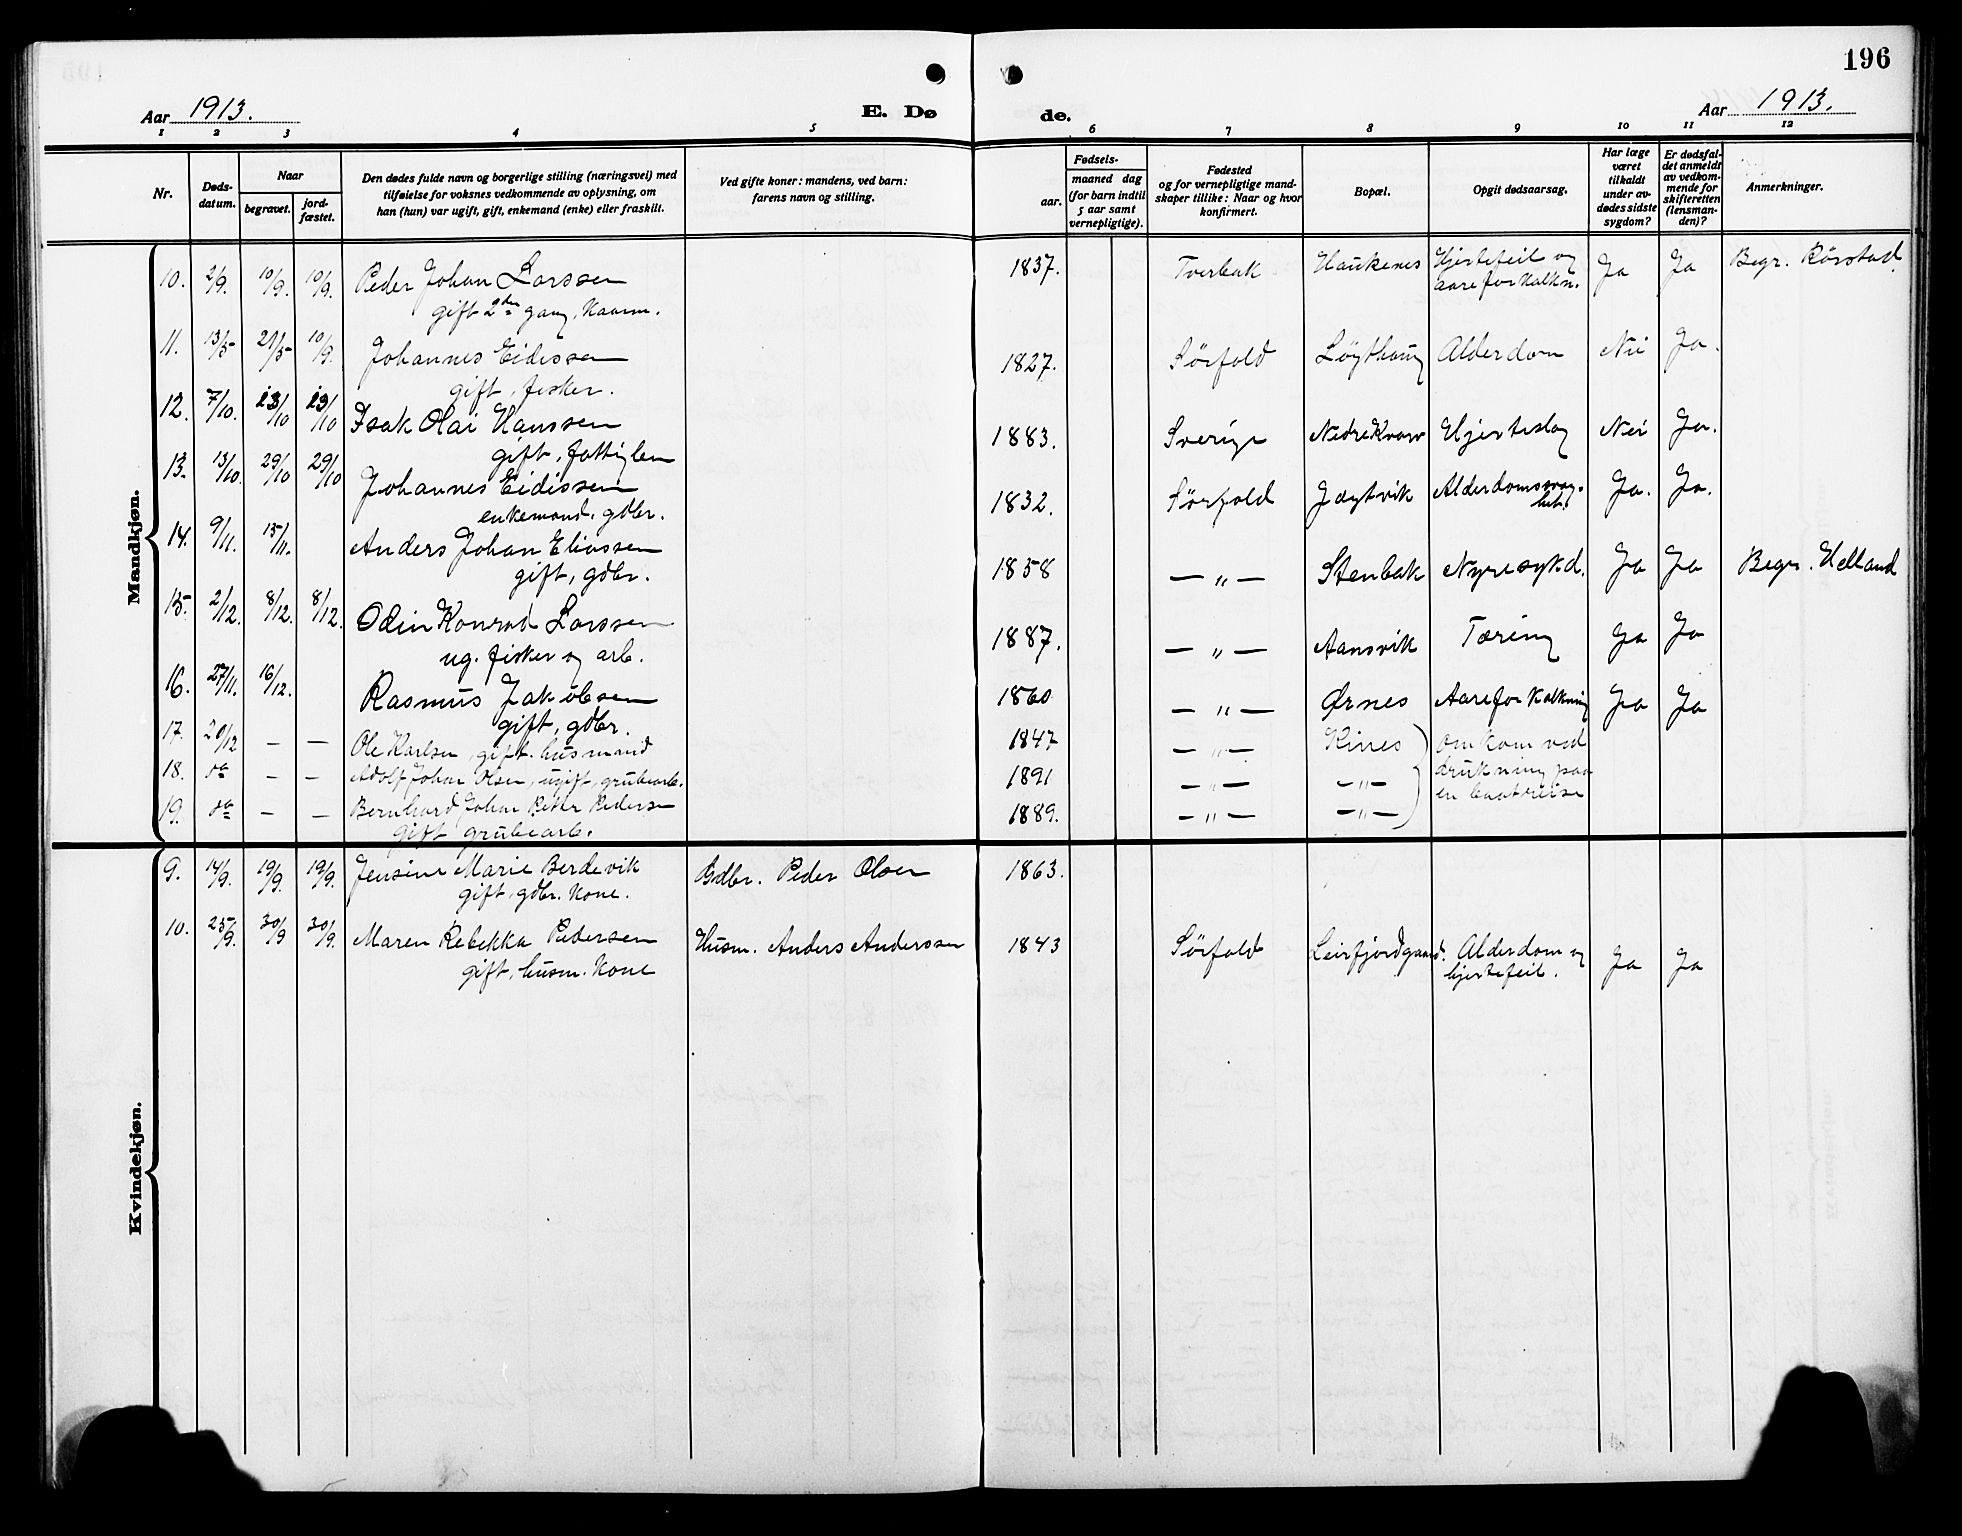 196
Aar 1913.
E. Dø
de.
Aar 1913.
1 2 3 4 5 6 7 8 9 10 11 12
Nr.
Døds-
datum.
Naar
begravet.
jord-
fæstet.
Den dødes fulde navn og borgerlige stilling (næringsvei) med
tilføielse for voksnes vedkommende av oplysning, om
han (hun) var ugift, gift, enkemand (enke) eller fraskilt.
Ved gifte koner: mandens, ved barn:
farens navn og stilling.
Fødsels-
aar.
maaned dag
(for barn indtil
5 aar samt
vernepligtige).
Fødested
og for vernepligtige mand-
skaper tillike: Naar og hvor
konfirmert.
Bopæl.
Opgit dødsaarsag.
Har læge
været
tilkaldt
under av-
dødes sidste
sygdom?
Er dødsfal-
det anmeldt
av vedkom-
mende for
skifteretten
(lensman-
den)?
Anmerkninger.
Mandkjøn.
10. 2/9. 10/9. 10/9. Peder Johan Larssen 1837. Tverbak Haukenes Hjertefeil og Ja Ja Begr. Rørstad.
gift 2den gang, Kaarm. aareforkalkn.
11. 13/5 21/5 10/9. Johannes Eidissen 1827. Sörfold Løgthaug Alderdom Nei Ja.
gift, fisker.
12. 7/10. 23/10 23/10 Isak Olai Hanssen 1883. Sverige Nedre Kvarv Hjerteslag Nei Ja.
gift, fattiglem
13. 13/10. 29/10 29/10 Johannes Eidissen 1832. Sörfold Jægtvik Alderdomssvag- Ja. Ja.
enkemand, gdbr. het.
14. 9/11. 15/11. Anders Johan Eliassen 1858 — „ — Stenbak Nyresykd. Ja Ja Begr. Helland
gift, gdbr.
15. 2/12. 8/12. 8/12. Odin Konrad Larssen 1887. — „ — Aansvik Tæring Ja Ja
ug. fisker og arb.
16. 27/11. 16/12. Rasmus Jakobsen 1860 — „ — Ørnes Aareforkalkning Ja Ja
gift, gdbr.
17. 20/12 — — Ole Karlsen, gift, husmand 1847 — „ — Kines omkom ved
18. do — — Adolf Johan Olsen, ugift, grubearb. 1891 — „ — — „ — drukning paa
19. do — — Bernhard Johan Peter Pedersen 1889. — „ — — „ — en baatreise
gift grubearb.
Kvindekjøn.
9. 14/9. 19/9. 19/9. Jensine Marie Berdevik Gdbr. Peder Olsen 1863.
gift, gdbr. Kone.
10. 25/9. 30/9 30/9. Maren Rebekka Pedersen Husm. Anders Anderssen 1843 Sörfold Leirfjordgaard. Alderdom og Ja Ja
gift, husm. Kone hjertefeil.